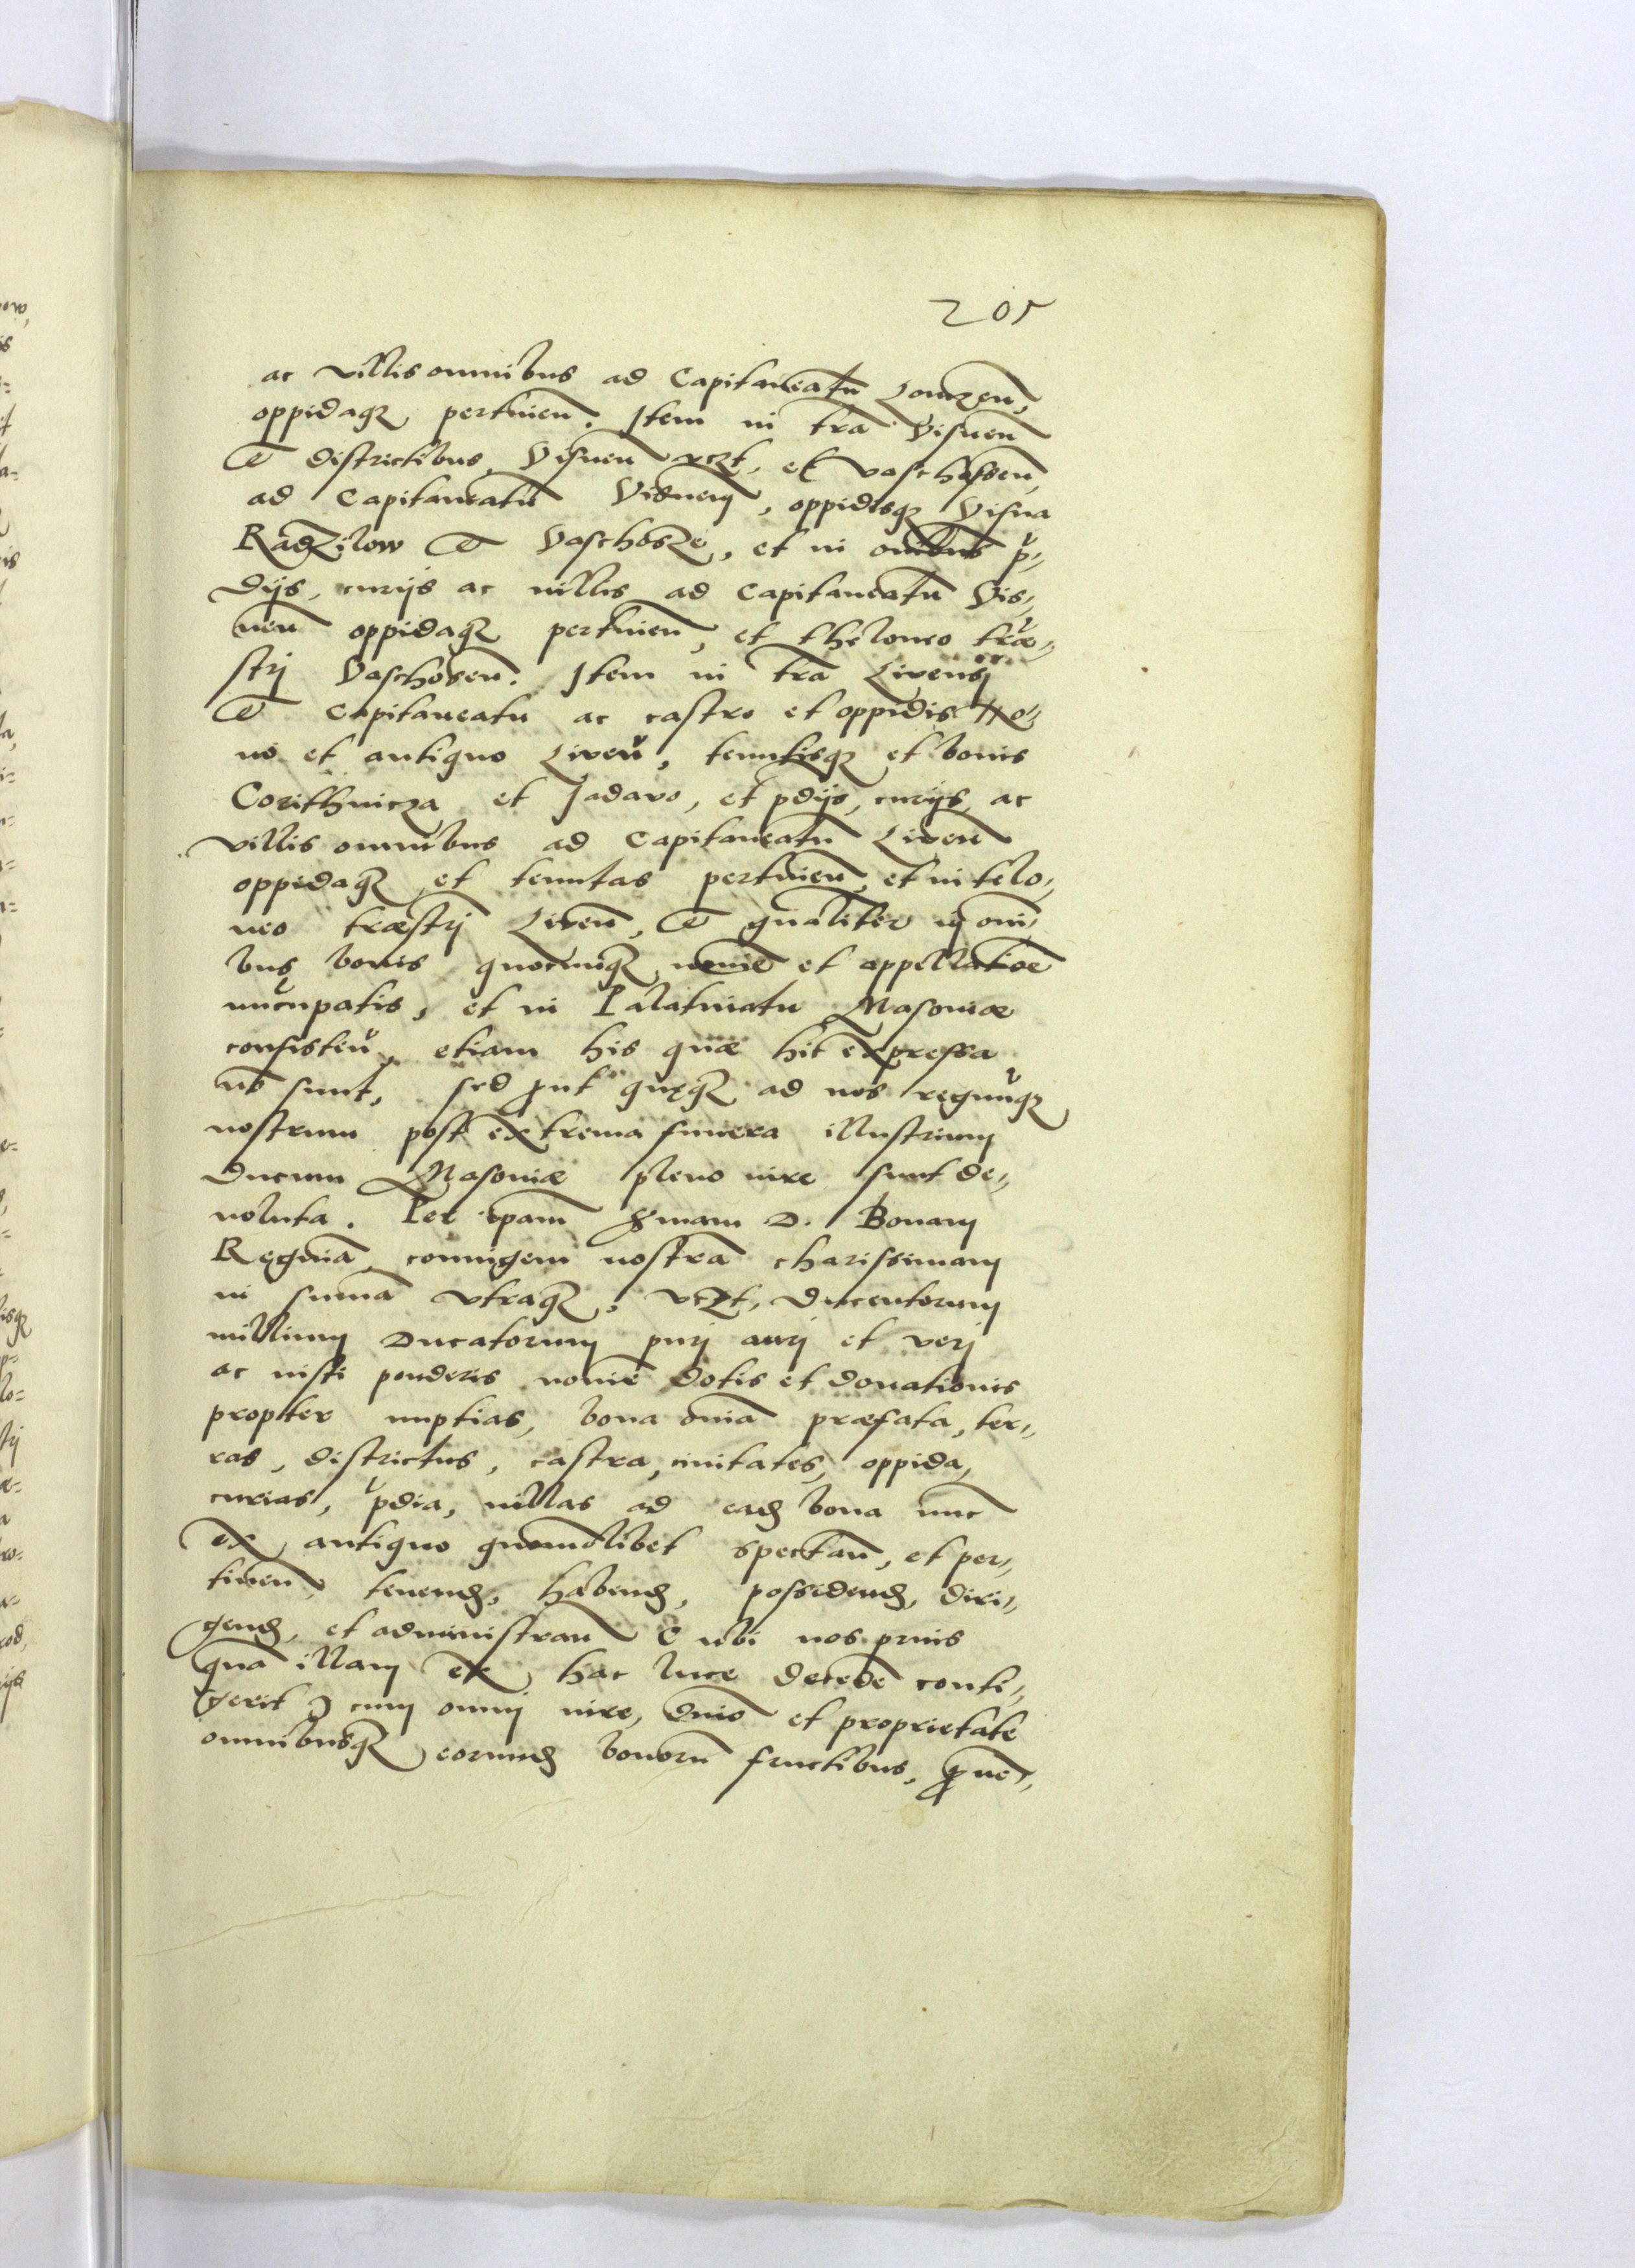 205
ac villis omnibus ad Capitaneatu̅ Lomzen̅,
oppidaq; pertinen̅. Item in tr̅a Visnen̅
& districtibus Visnen̅ vczt, et Vaschossen̅,
ad Capitaneatu̅ Visnen̅, oppidisq; Visna
Radzilow & Vaschosze, et in om̅ibus p̅,,
dijs, curijs ac villis ad Capitaneatu̅ Vis,,
nen̅ oppidaq; pertinen̅, et theloneo træ,,
strj Vaschosen̅. Item in tr̅a Livensj
& Capitaneatu ac castro et oppidis No,,
uo et antiquo Liven̅, tenutisq; et bonis
Corithnicza et Jadavo, et p̅dijs, curijs ac
villis omnibus ad Capitaneatu̅ Liven̅
oppidaq; et tenutas pertinen̅, et in telo,,
neo træstrj Liven̅, & qualiter in om̅i,,
bus bonis quocunq; nomi̅e et appellatio̅e
nu̅cupatis, et in Palatinatu Masoviæ
consisten̅, etiam his quæ hic expressa
no̅ sunt, sed prout quęq; ad nos regnu̅q;
nostrum post extrema funera illustrium
Ducum Masoviæ pleno iure sunt de,,
uoluta. Per ip̅am S̅mam D. Bonam
Regina̅, coniugem nostra̅ charissimam
in su̅ma utraq;, vczt, Ducentorum
millium Ducatorum puri auri et veri
ac iusti ponderis nomi̅e dotis et donationis
propter nuptias, bona om̅ia præfata, ter,,
ras, districtus, castra, ciuitates, oppida,
curias, p̅dia, villas ad ead̅ bona nunc
ex antiquo quomodolibet spectan̅, et per,,
tinen̅, tenend̅, habend̅, possidend̅, diri,,
gend̅, et administran̅ ( ubi nos prius
qua̅ illam ex hac luce decede̅ conti,,
gerit ) cum omni iure, D̅nio et proprietate
omnibusq; eorund̅ bonoru̅ fructibus, proue̅,,